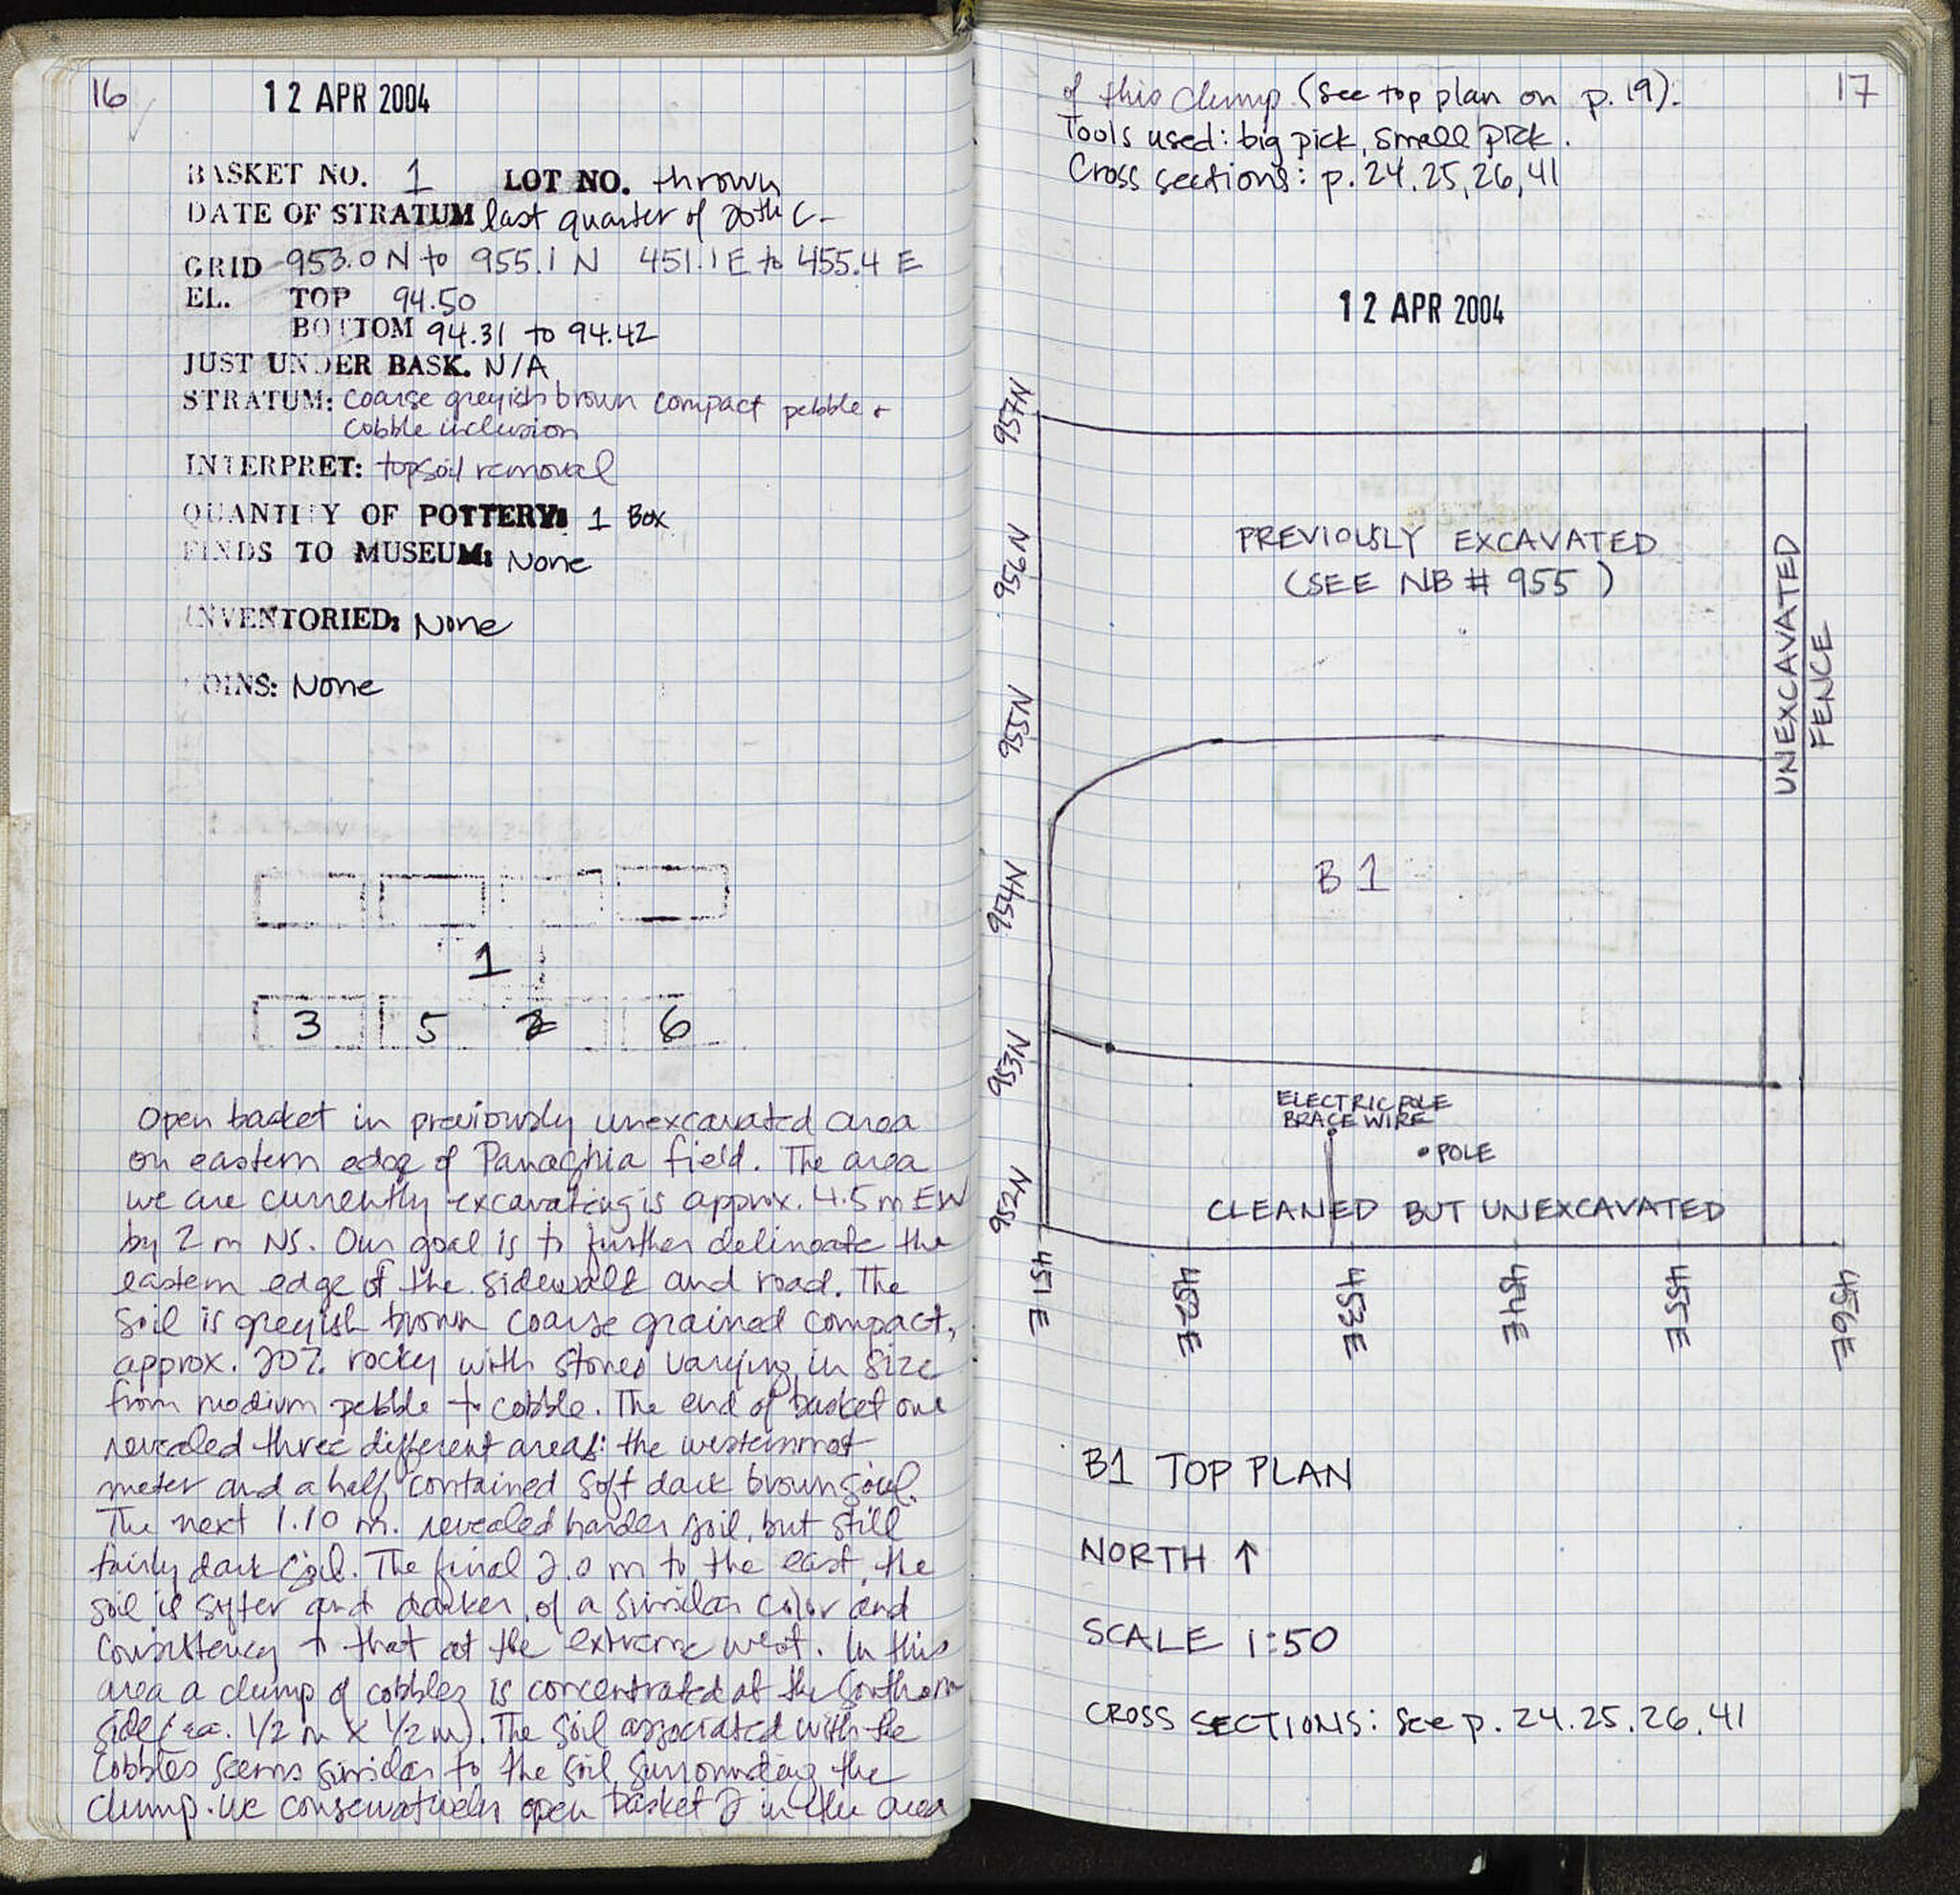 16
12 APR 2004
BASKET NO. 1 LOT NO. thrown
DATE OF STRATUM last quarter of 20th C.
GRID 953.0 N to 955.1 N 451.1 E to 455.4 E
EL. TOP 94.50
BOTTOM 94.31 to 94.42
JUST UNDER BASK. N/A
STRATUM: coarse greyish brown compact pebble +
cobble inclusion
INTERPRET: topsoil removal
QUANTITY OF POTTERY: 1 Box
FINDS TO MUSEUM: None
INVENTORIED: None
COINS: None
1
3 5 2 6
Open basket in previously unexcavated area
on eastern edge of Panaghia field. The area
we are currently excavating is approx. 4.5 m EW
by 2 m NS. Our goal is to further delineate the
eastern edge of the sidewalk and road. The
soil is greyish brown coarse grained compact,
approx. 20% rocky with stones varying in size
from medium pebble to cobble. The end of basket one
revealed three different areas: the westernmost
meter and a half contained soft dark brown soil.
The next 1.10 m. revealed harder soil, but still
fairly dark soil. The final 2.0 m to the east, the
soil is softer and darker, of a similar color and
consistency to that at the extreme west. In this
area a clump of cobbles is concentrated at the southern
side (ca. 1/2 m x 1/2 m). The soil associated with the
cobbles seems similar to the soil surrounding the
clump. We conservatively open basket 2 in the area
of this clump (see top plan on p. 19).
17
Tools used: big pick, small pick.
Cross sections: p. 24, 25, 26, 41
12 APR 2004
957N
956N
955N
954N
953N
952N
PREVIOUSLY EXCAVATED
(SEE NB # 955)
UNEXCAVATED
FENCE
B1
ELECTRIC POLE
BRACE WIRE
POLE
CLEANED BUT UNEXCAVATED
451E
452E
453E
454E
455E
456E
B1 TOP PLAN
NORTH ↑
SCALE 1:50
CROSS SECTIONS: See p. 24. 25. 26. 41